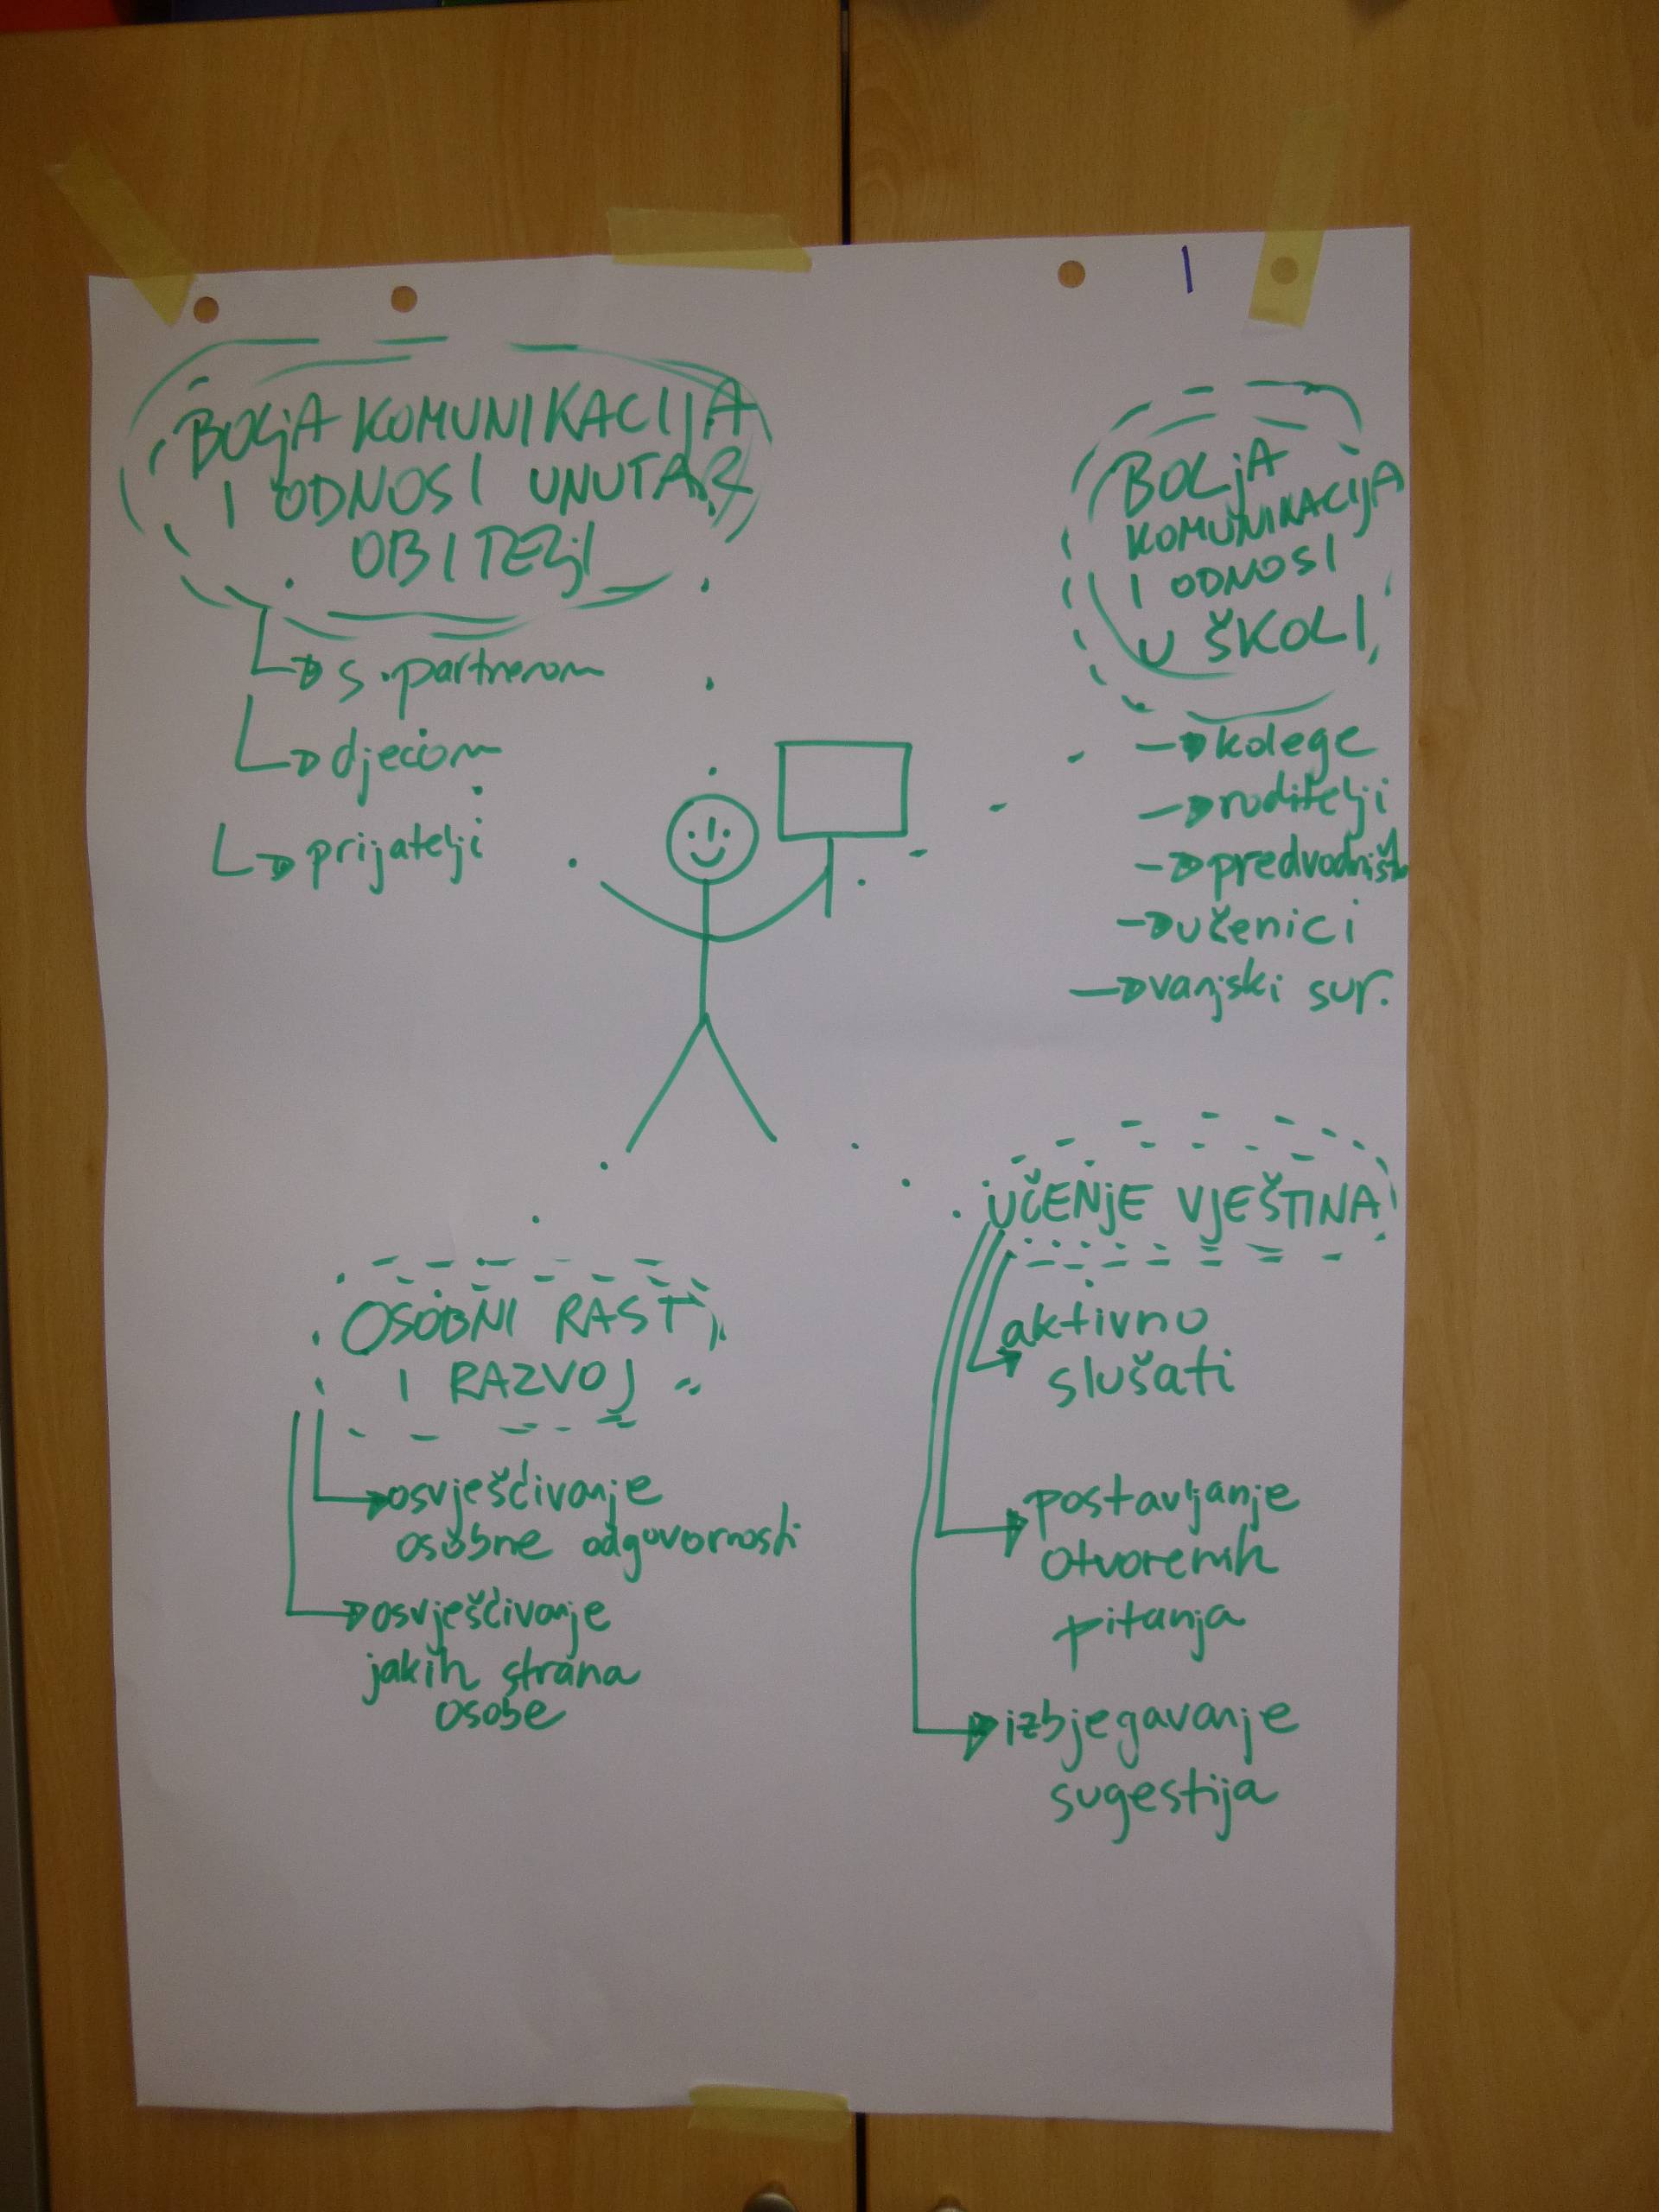 1
BOLJA KOMUNIKACIJA
I ODNOSI UNUTAR
OBITELJI
s partnerom
djecom
prijatelji
BOLJA
KOMUNIKACIJA
I ODNOSI
U ŠKOLI
kolege
roditelji
predvodništvo
učenici
vanjski sur.
OSOBNI RAST
I RAZVOJ
osvješćivanje
osobne odgovornosti
osvješćivanje
jakih strana
osobe
UČENJE VJEŠTINA
aktivno
slušati
postavljanje
otvorenih
pitanja
izbjegavanje
sugestija